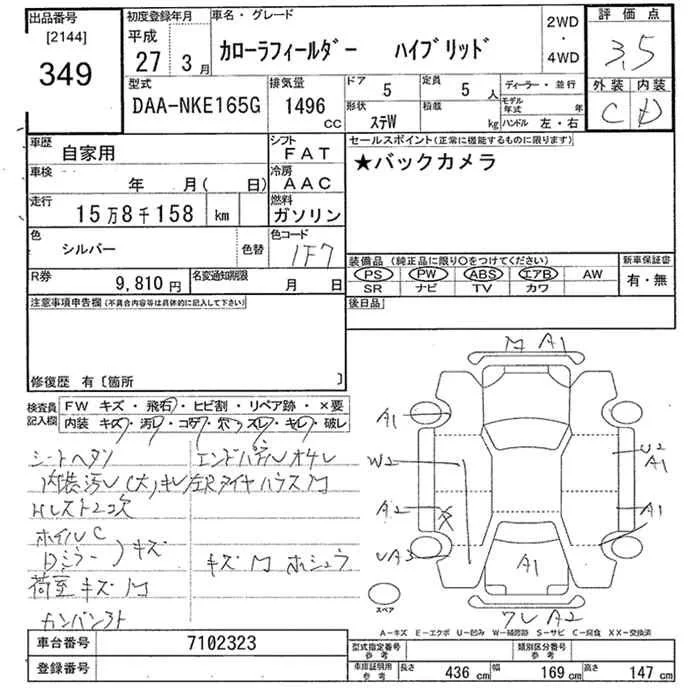 出品番号 初度登録年月 車名・グレード 2WD・4WD 評価点
[2144] 平成 27年 3月 カローラフィールダー ハイブリッド 3.5
349
型式 排気量 ドア 5 定員 5人 ディーラー・並行 外装 内装
DAA-NKE165G 1496cc 形状 ステW 積載 kg モデル年式 年 ハンドル 左・右 C D
車歴 自家用 シフト FAT セールスポイント(正常に機能するものに限ります)
車検 年 月( 日) 冷房 AAC ★バックカメラ
走行 15万8千158 km 燃料 ガソリン
色 シルバー 色替 色コード 1F7
装備品(純正品に限り○をつけてください) 新車保証書
PS PW ABS エアB AW 有・無
SR ナビ TV カワ
R券 9,810円 名変通知期限 月 日
注意事項申告欄(不具合内容等は具体的に記入して下さい) 後日品
修復歴 有〔箇所 〕
検査員記入欄 FW キズ・飛石・ヒビ割・リペア跡・×要
内装 キズ・汚レ・コゲ・穴・スレ・キレ・破レ
シートヘタリ エンドパネル オサレ
内装汚レ(大)キレ 左Rタイヤハウス
ホイルC
ミラー キズ
キズ ホシュウ
荷室 キズ
カンバン外ト
A1
A1
W2 U2 A1
A2 A1
UA3
A1
スペア
A2
A-キズ E-エクボ U-凹み W-補修跡 S-サビ C-腐食 XX-交換済
車台番号 7102323
登録番号
型式指定番号 参考 類別区分番号 参考
車庫証明用 参考 長さ 436cm 幅 169cm 高さ 147cm